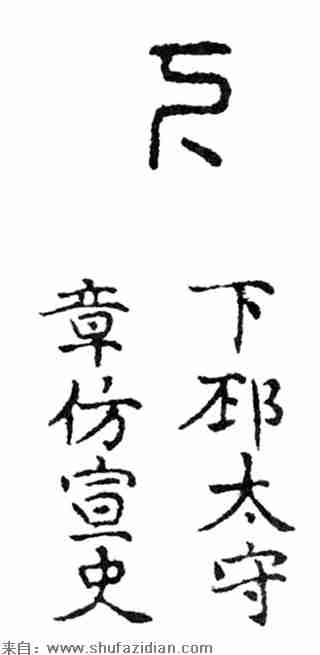 下邳太守
章仿宣史
来自：www.shufazidian.com